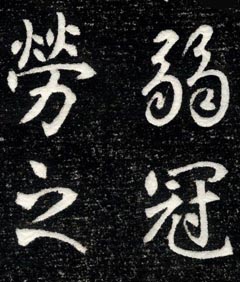 弱冠
勞之